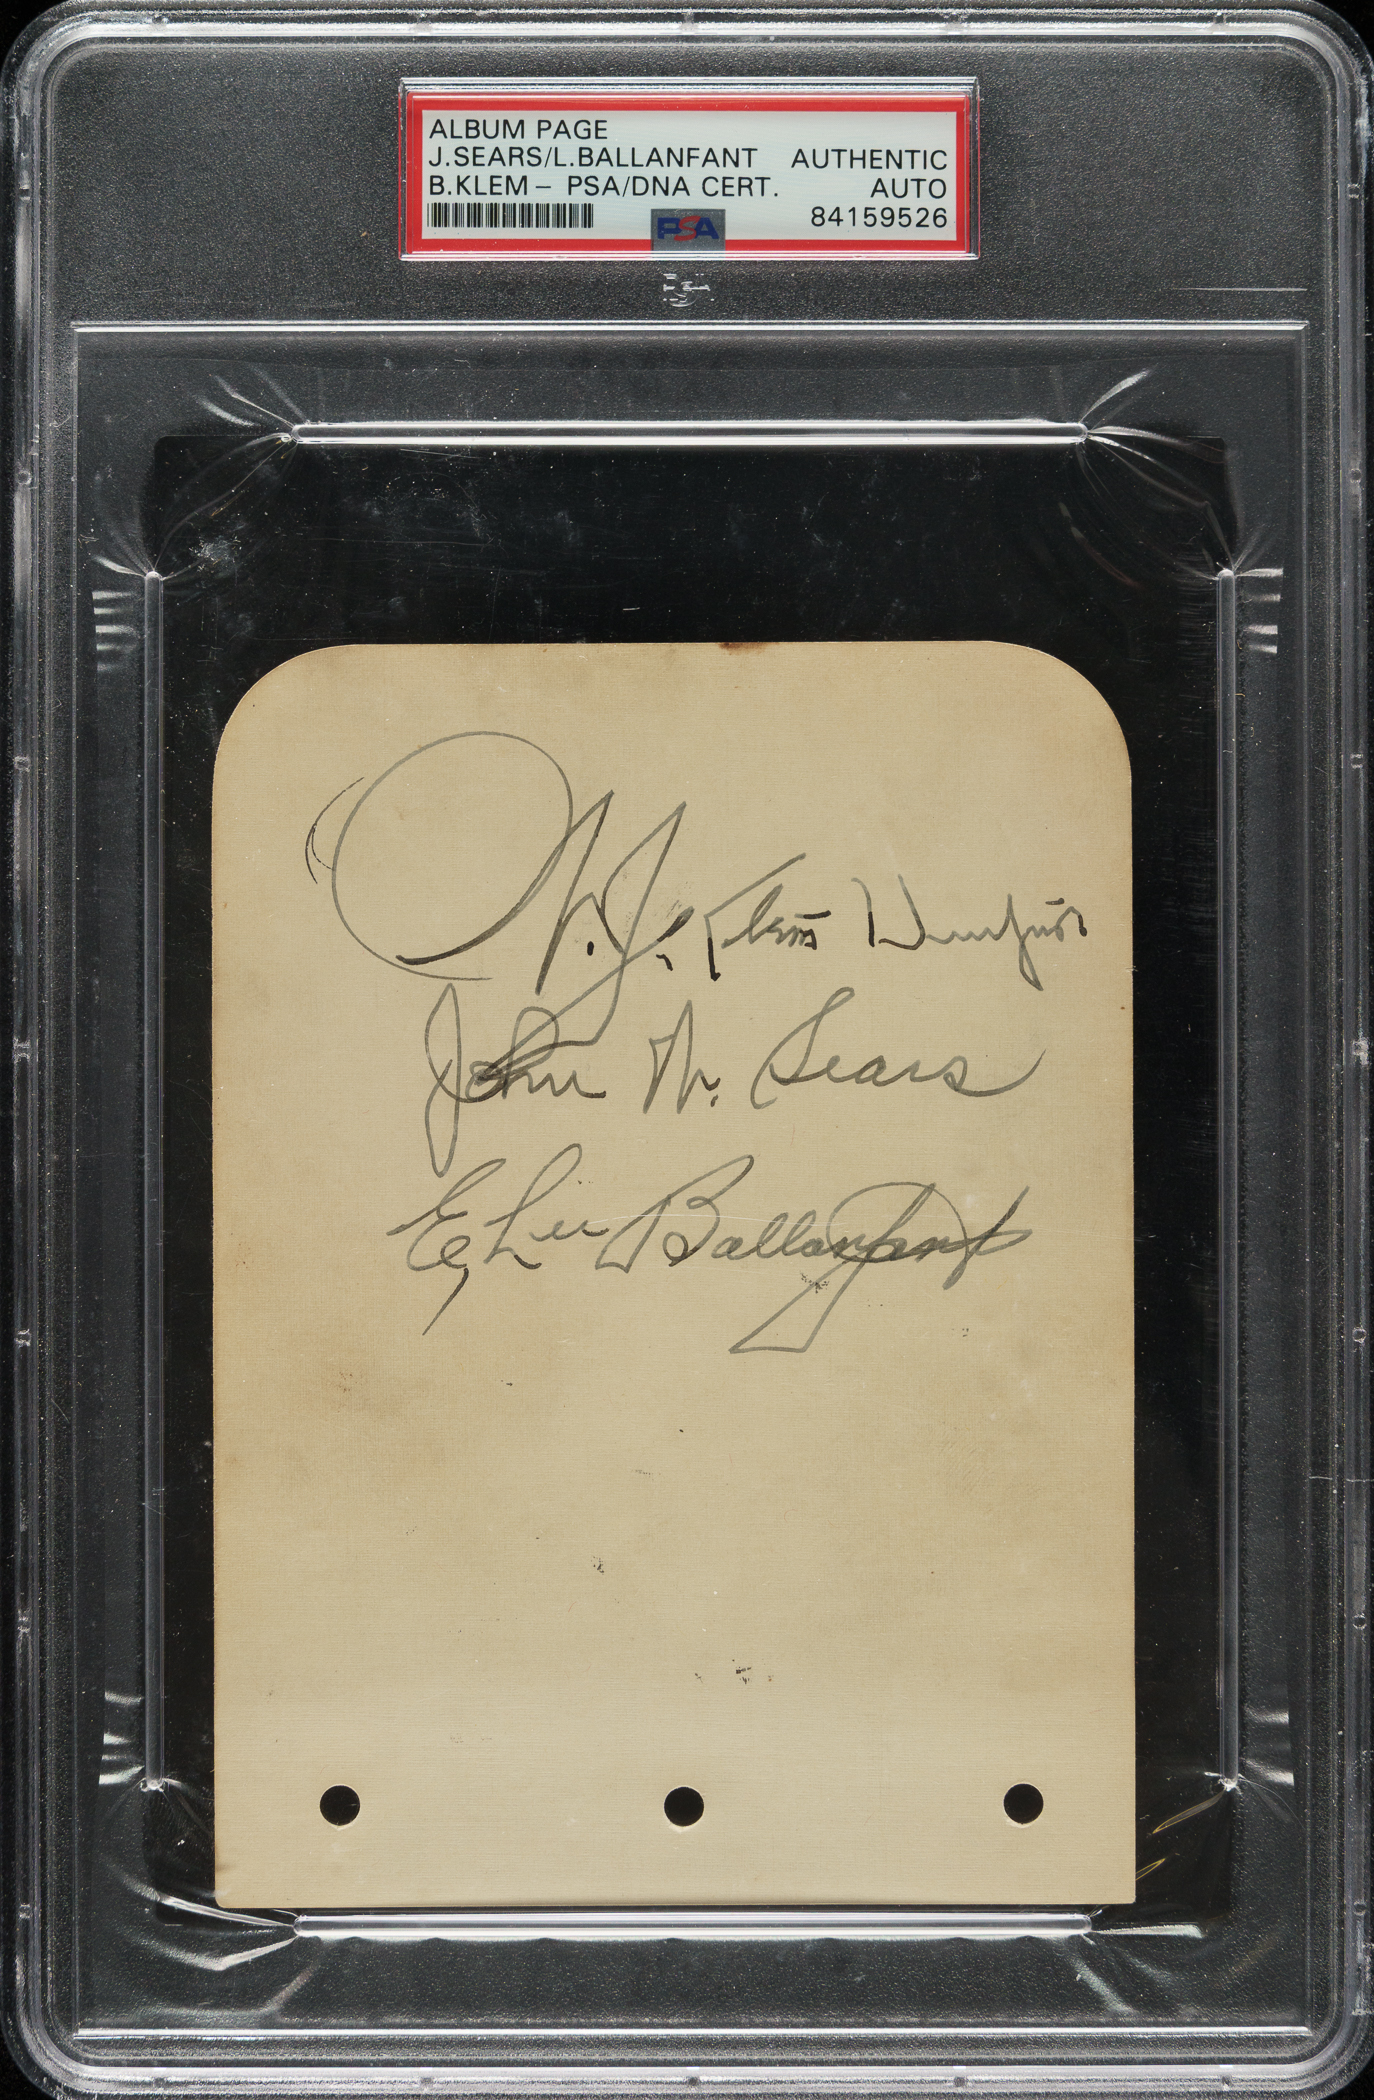 ALBUM PAGE
J.SEARS/L.BALLANFANT AUTHENTIC
B.KLEM – PSA/DNA CERT. AUTO
84159526
PSA
W.J. Klem Umpire
John W. Sears
E, Lee Ballanfant